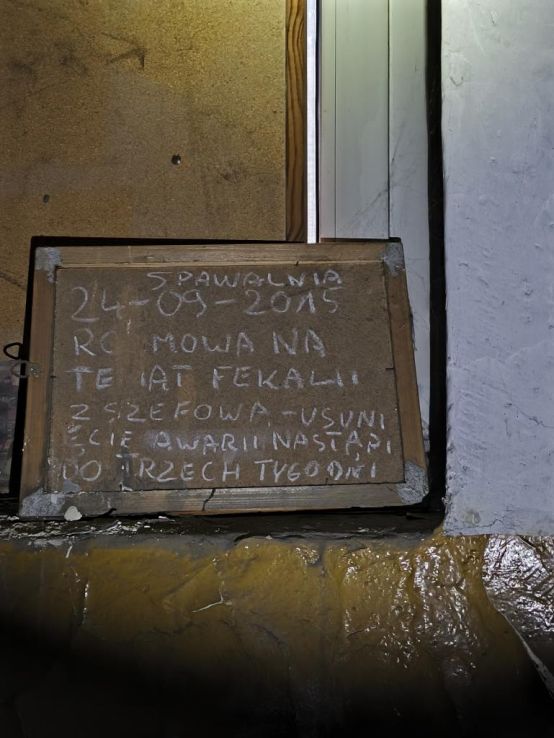 SPAWALNIA
24-09-2015
RO MOWA NA
TE IAT FEKALII
Z SZEFOWĄ - USUNI
ĘCIE AWARII NASTĄPI
DO TRZECH TYGODNI